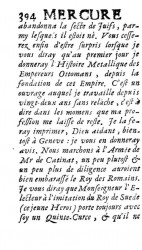 394 MERCURE
abandonna la secte de Juifs, par-
my lesquels il estoit né. Vous cesse-
rez enfin d'estre surpris lorsque je
vous diray qu'au premier jour je
donneray l'Histoire Metallique des
Empereurs Ottomans, depuis la
fondation de cet Empire. C'est un
ouvrage qui m'a travaillé depuis
vingt-deux ans sans relache, c'est à
dire dans les momens que ma pro-
fession me laisse de reste, Je la fe-
ray imprimer, Dieu aidant, bien-
tost à Geneve: je vous en donneray
avis, Nous marchons à l'Armée de
Mr de Catinat, un peu plutost &
un peu plus de diligence auroient
bien embarassé le Roy des Romains.
Je vous diray que Monseigneur l'E-
lecteur à l'imitation du Roy de Suede
(ce jeune Heros) porte toujours avec
soy un Quinte-Curce, & qu'il ne